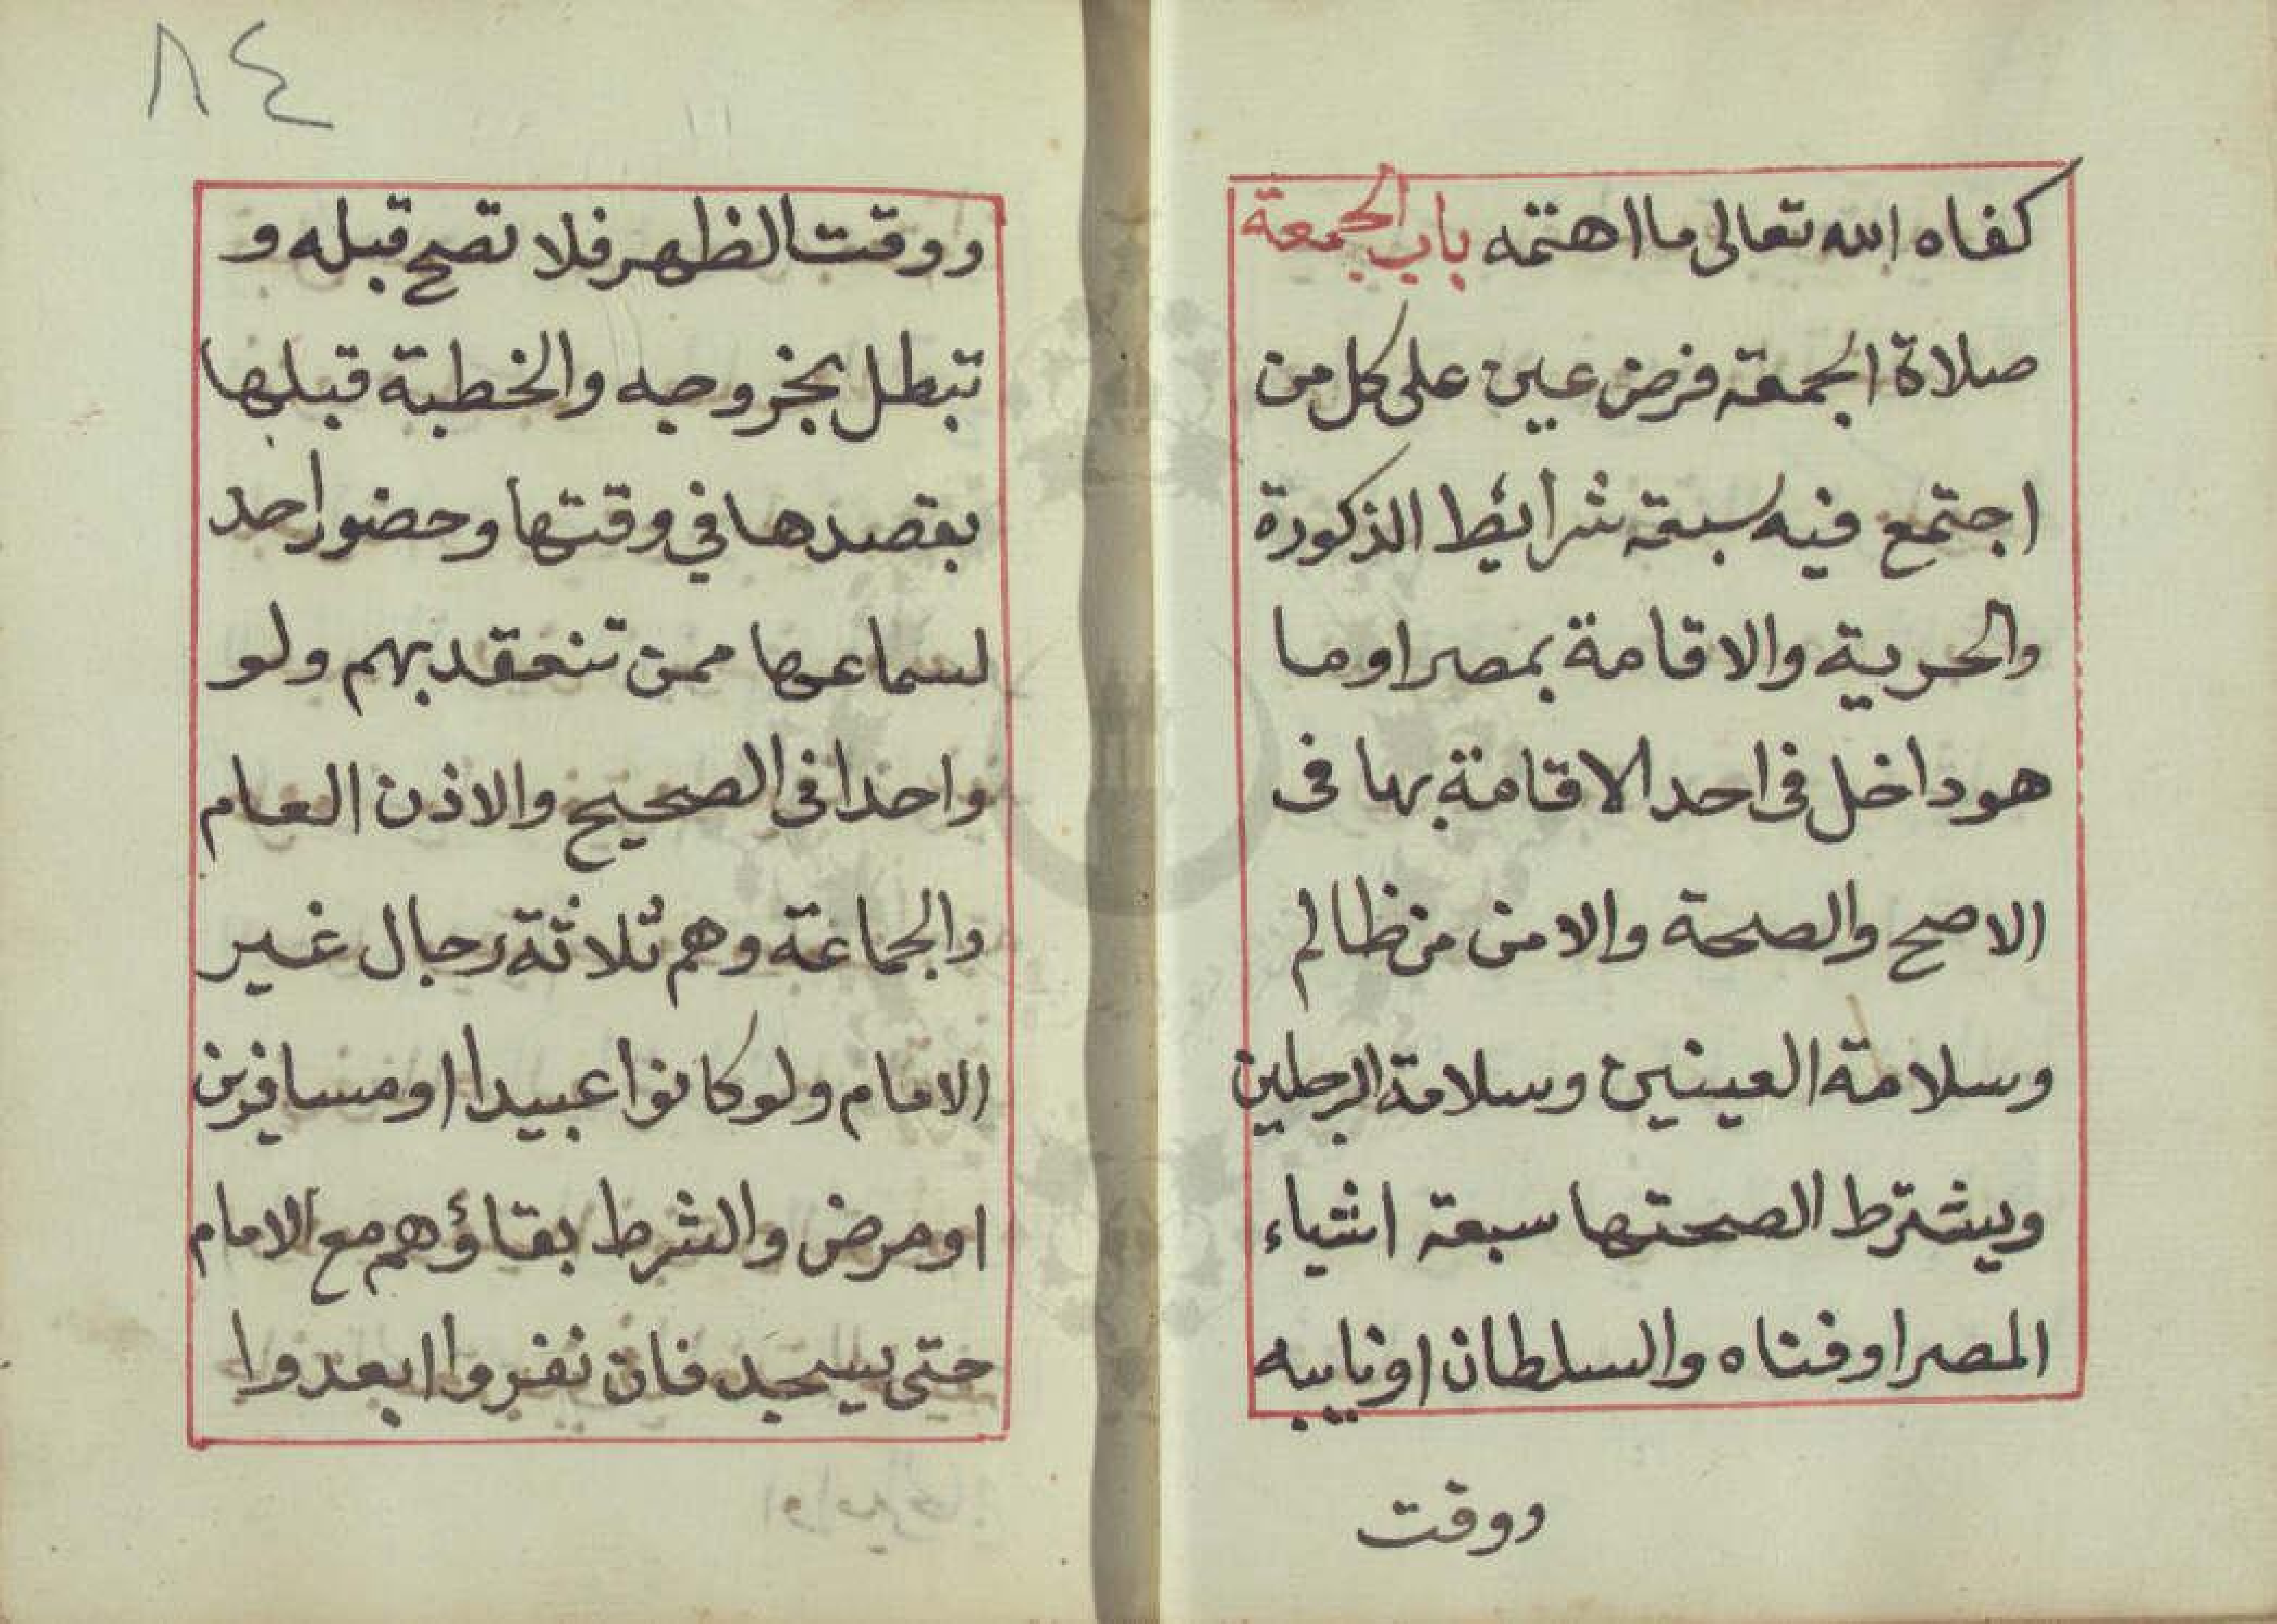 كفاه الله تعالى ما اهتمه باب الجمعة
صلاة الجمعة فرض عين على كل من
اجتمع فيه سبعة شرائط الذكورة
والحرية والاقامة بمصر اوما
هو داخل فى احد الاقامة بها فى
الاصح والصحة والامن من ظالم
وسلامة العينين وسلامة الرجلين
ويشترط الصحتها سبعة اشياء
المصر او فناه والسلطان او نايبه
ووقت
٨٤
ووقت الظهر فلا تصح قبله و
تبطل بخروجه والخطبة قبلها
بقصدها في وقتها وحضور احد
لسماعها ممن تنعقد بهم ولو
واحدا فى الصحيح والاذن العام
والجماعة وهم ثلاثة رجال غير
الامام ولو كانوا عبيدا او مسافرين
او مرض والشرط بقاؤهم مع الامام
حتى يسجد فان نفروا ابعدوا